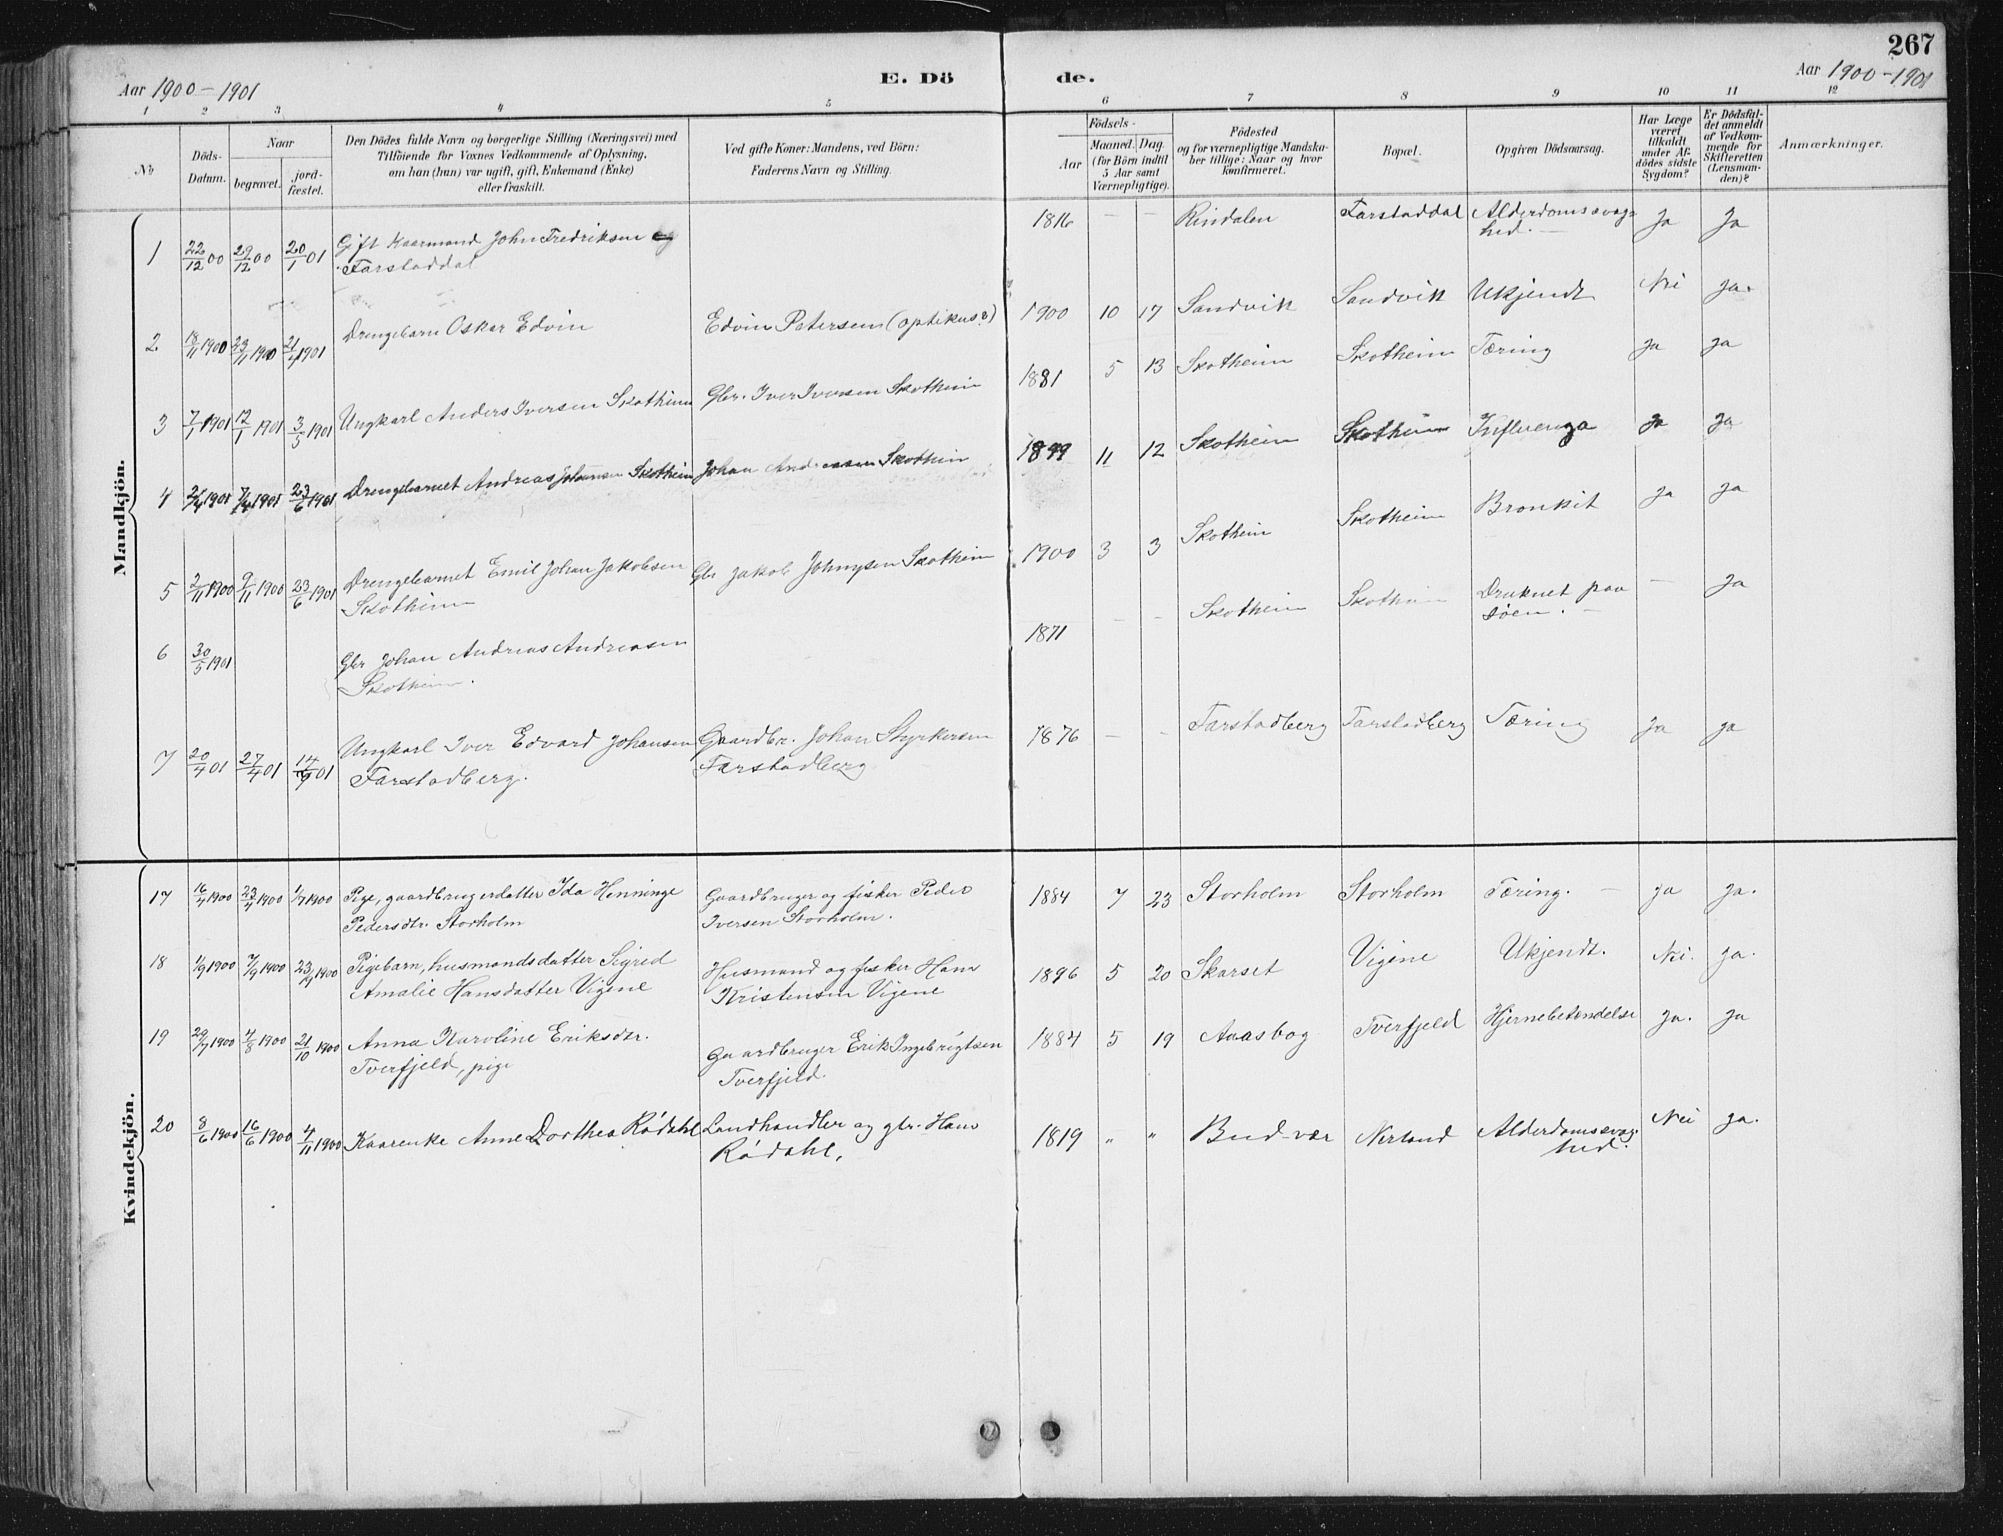 267
Aar 1900-1901
E. Dö de.
Aar 1900-1901
1 2 3 4 5 6 7 8 9 10 11 12
No
Döds-Datum.
Naar
begravet.
jordfæstet.
Den Dödes fulde Navn og borgerlige Stilling (Næringsvei) med
Tilföiende for Voxnes Vedkommende af Oplysning,
om han (hun) var ugift, gift, Enkemand (Enke)
eller fraskilt.
Ved gifte Koner: Mandens, ved Börn:
Faderens Navn og Stilling.
Födsels-
Aar
Maaned. Dag.
(for Börn indtil
5 Aar samt
Værnepligtige).
Födested
og for værnepligtige Mandska-
ber tillige: Naar og hvor
konfirmeret.
Bopæl.
Opgiven Dödsaarsag.
Har Læge
været
tilkaldt
under Af-
dödes sidste
Sygdom?
Er Dödsfal-
det anmeldt
af Vedkom-
mende for
Skifteretten
(Lensman-
den)?
Anmærkninger.
Mandkjön.
1 22/12 00 29/12 00 20/1 01 Gift Kaarmand John Fredriksen
Farstaddal
1816 — — Rindalen Farstaddal Alderdomssvag-
hed. — Ja Ja
2 18/11 1900 23/11 1900 21/1 1901 Drengebarn Oskar Edvin Edvin Petersen (optikus?) 1900 10 17 Sandvik Sandvik Ukjendt Nei ja.
3 7/1 1901 12/1 1901 3/5 1901 Ungkarl Anders Iversen Skotheim Gbr. Iver Iversen Skotheim 1881 5 13 Skotheim Skotheim Tæring ja ja
4 2/4 1901 7/4 1901 23/6 1901 Drengebarnet Andreas Johansen Skotheim Johan Andreasen Skotheim 1899 11 12 Skotheim Skotheim Influenza Ja ja
5 2/11 1900 9/11 1900 23/6 1901 Drengebarnet Emil Johan Jakobsen
Skotheim
Gbr Jakob Johnysen Skotheim 1900 3 3 Skotheim Skotheim Bronkit ja ja
6 30/5 1901 Gbr Johan Andreas Andreasen
Skotheim.
1871 - - Skotheim Skotheim Druknet paa
söen. — — Ja
7 20/4 01 27/4 01 Ungkarl Iver Edvard Johansen
Farstadberg.
Gaardbr. Johan Styrkersen
Farstadberg
1876 — - Farstadberg Farstadberg Tæring ja ja
Kvindekjön.
17 16/4 1900 23/4 1900 1/7 1900 Pige, gaardbrugerdatter Ida Henninge
Pedersdtr. Storholm
Gaardbruger og fisker Peder
Iversen Storholm.
1884 7 23 Storholm Storholm Tæring. — ja ja.
18 1/9 1900 7/9 1900 23/9 1900 Pigebarn, husmandsdatter Sigrid
Amalie Hansdatter Vigene
Husmand og fisker Hans
Kristensen Vigene
1896 5 20 Skarset Vigene Ukjendt. Nei. ja.
19 29/7 1900 4/8 1900 21/10 1900 Anna Karoline Eriksdtr.
Tverfjeld, pige
Gaardbruger Erik Ingebrigtsen
Tverfjeld.
1884 5 19 Aaasbog Tverfjeld Hjernebetendelse ja. ja
20 8/6 1900 16/6 1900 4/11 1900 Kaarenke Anne Dorthea Rödahl Landhandler og gbr. Hans
Rödahl,
1819 " " Bud-vær Nerland Alderdomssvag-
hed. Nei ja.